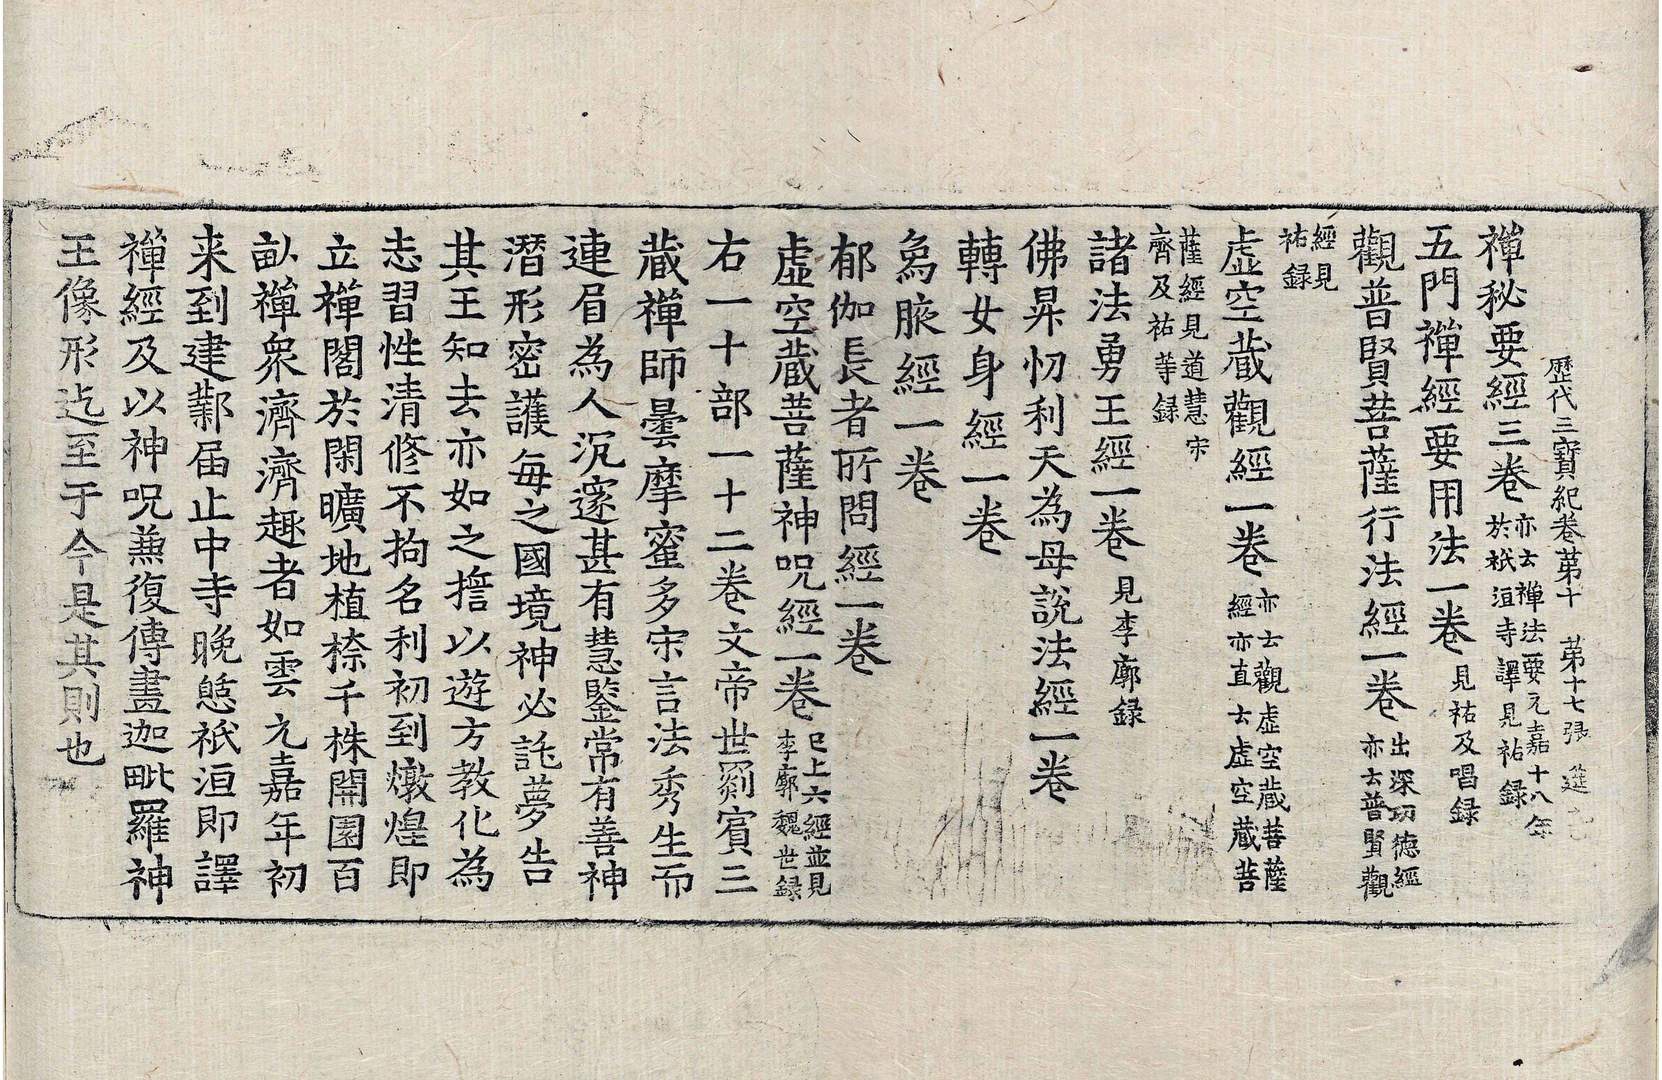 歷代三寶紀卷第十　第十七張
禪秘要經三卷亦云禪法要元嘉十八年於祇洹寺譯見祐錄
五門禪經要用法一卷見祐及唱録
觀普賢菩薩行法經一卷出深功德經亦云普賢觀
經見祐録
虛空藏觀經一卷亦云觀虛空藏菩薩經亦直云虛空藏菩
薩經見道慧宋齊及祐等録
諸法勇王經一卷見李廓録
佛昇忉利天為母說法經一卷
轉女身經一卷
象腋經一卷
郁伽長者所問經一卷
虛空藏菩薩神呪經一卷已上六經並見李廓魏世録
右一十部一十二卷文帝世罽賓三
藏禪師曇摩蜜多宋言法秀生而
連眉為人沉邃甚有慧鑒常有善神
潛形密護每之國境神必託夢告
其王知去亦如之擔以遊方教化為
志習性清修不拘名利初到燉煌即
立禪閣於閑曠地植㮈千株開園百
畝禪眾濟濟趣者如雲元嘉年初
来到建鄴届止中寺晚憇祇洹即譯
禪經及以神呪兼復傳畫迦毗羅神
王像形迄至于今是其則也